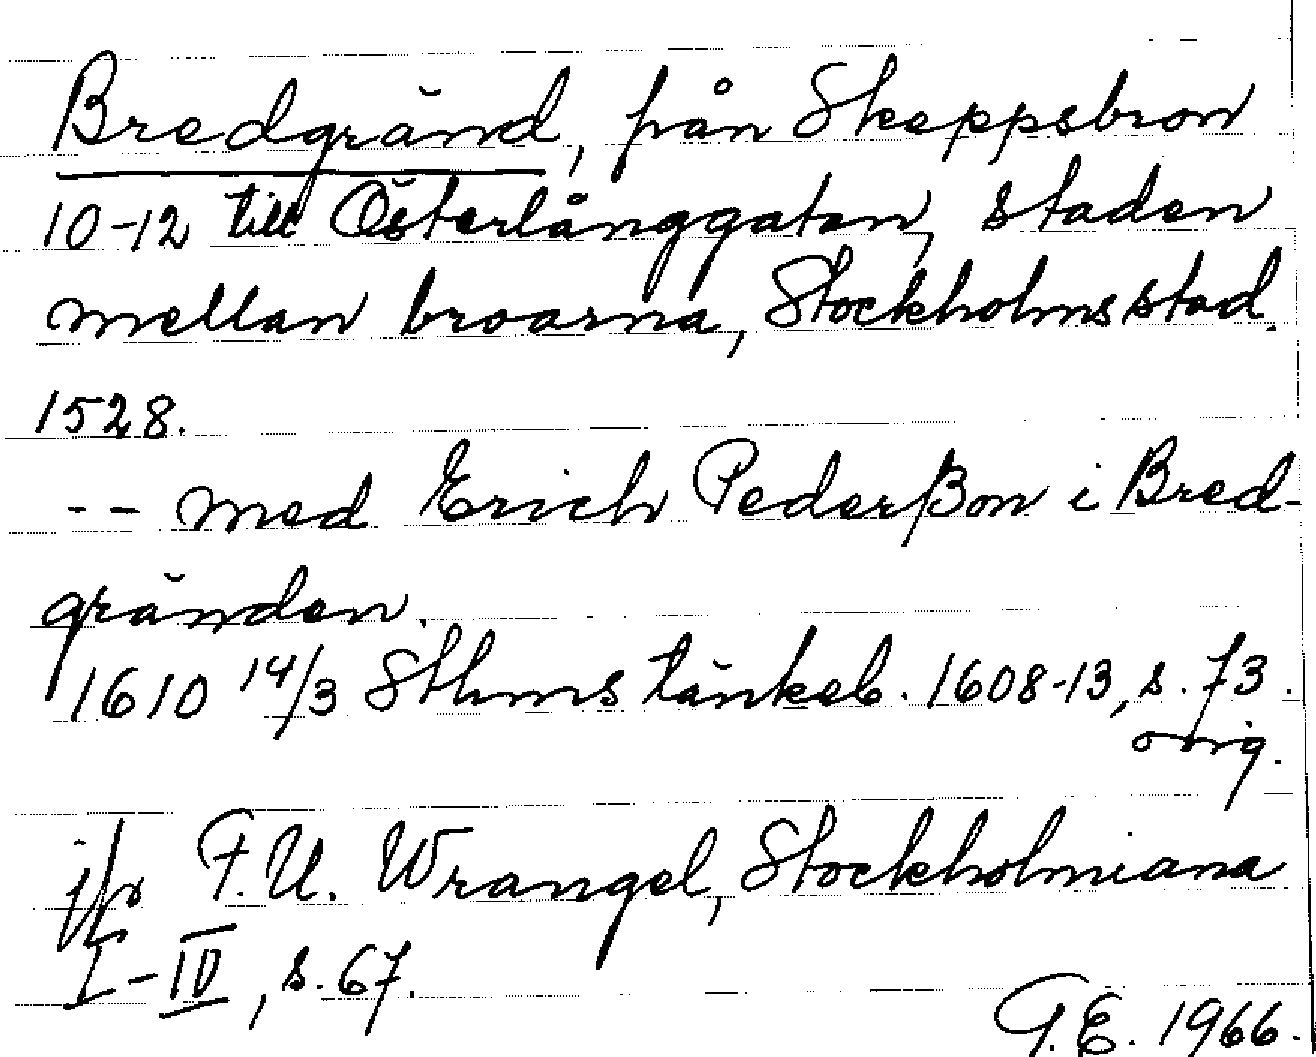 Bredgränd, från Skeppsbron
10-12 till Österlånggatan, staden
mellan broarna, Stockholms stad.
1528.
-- med Erich Pederßon i Bred-
gränden.
1610 14/3 Sthms tänkeb. 1608-13, s. 73.
orig.
jfr F.U. Wrangel, Stockholmiana
I-IV, s. 67.
G.E. 1966.